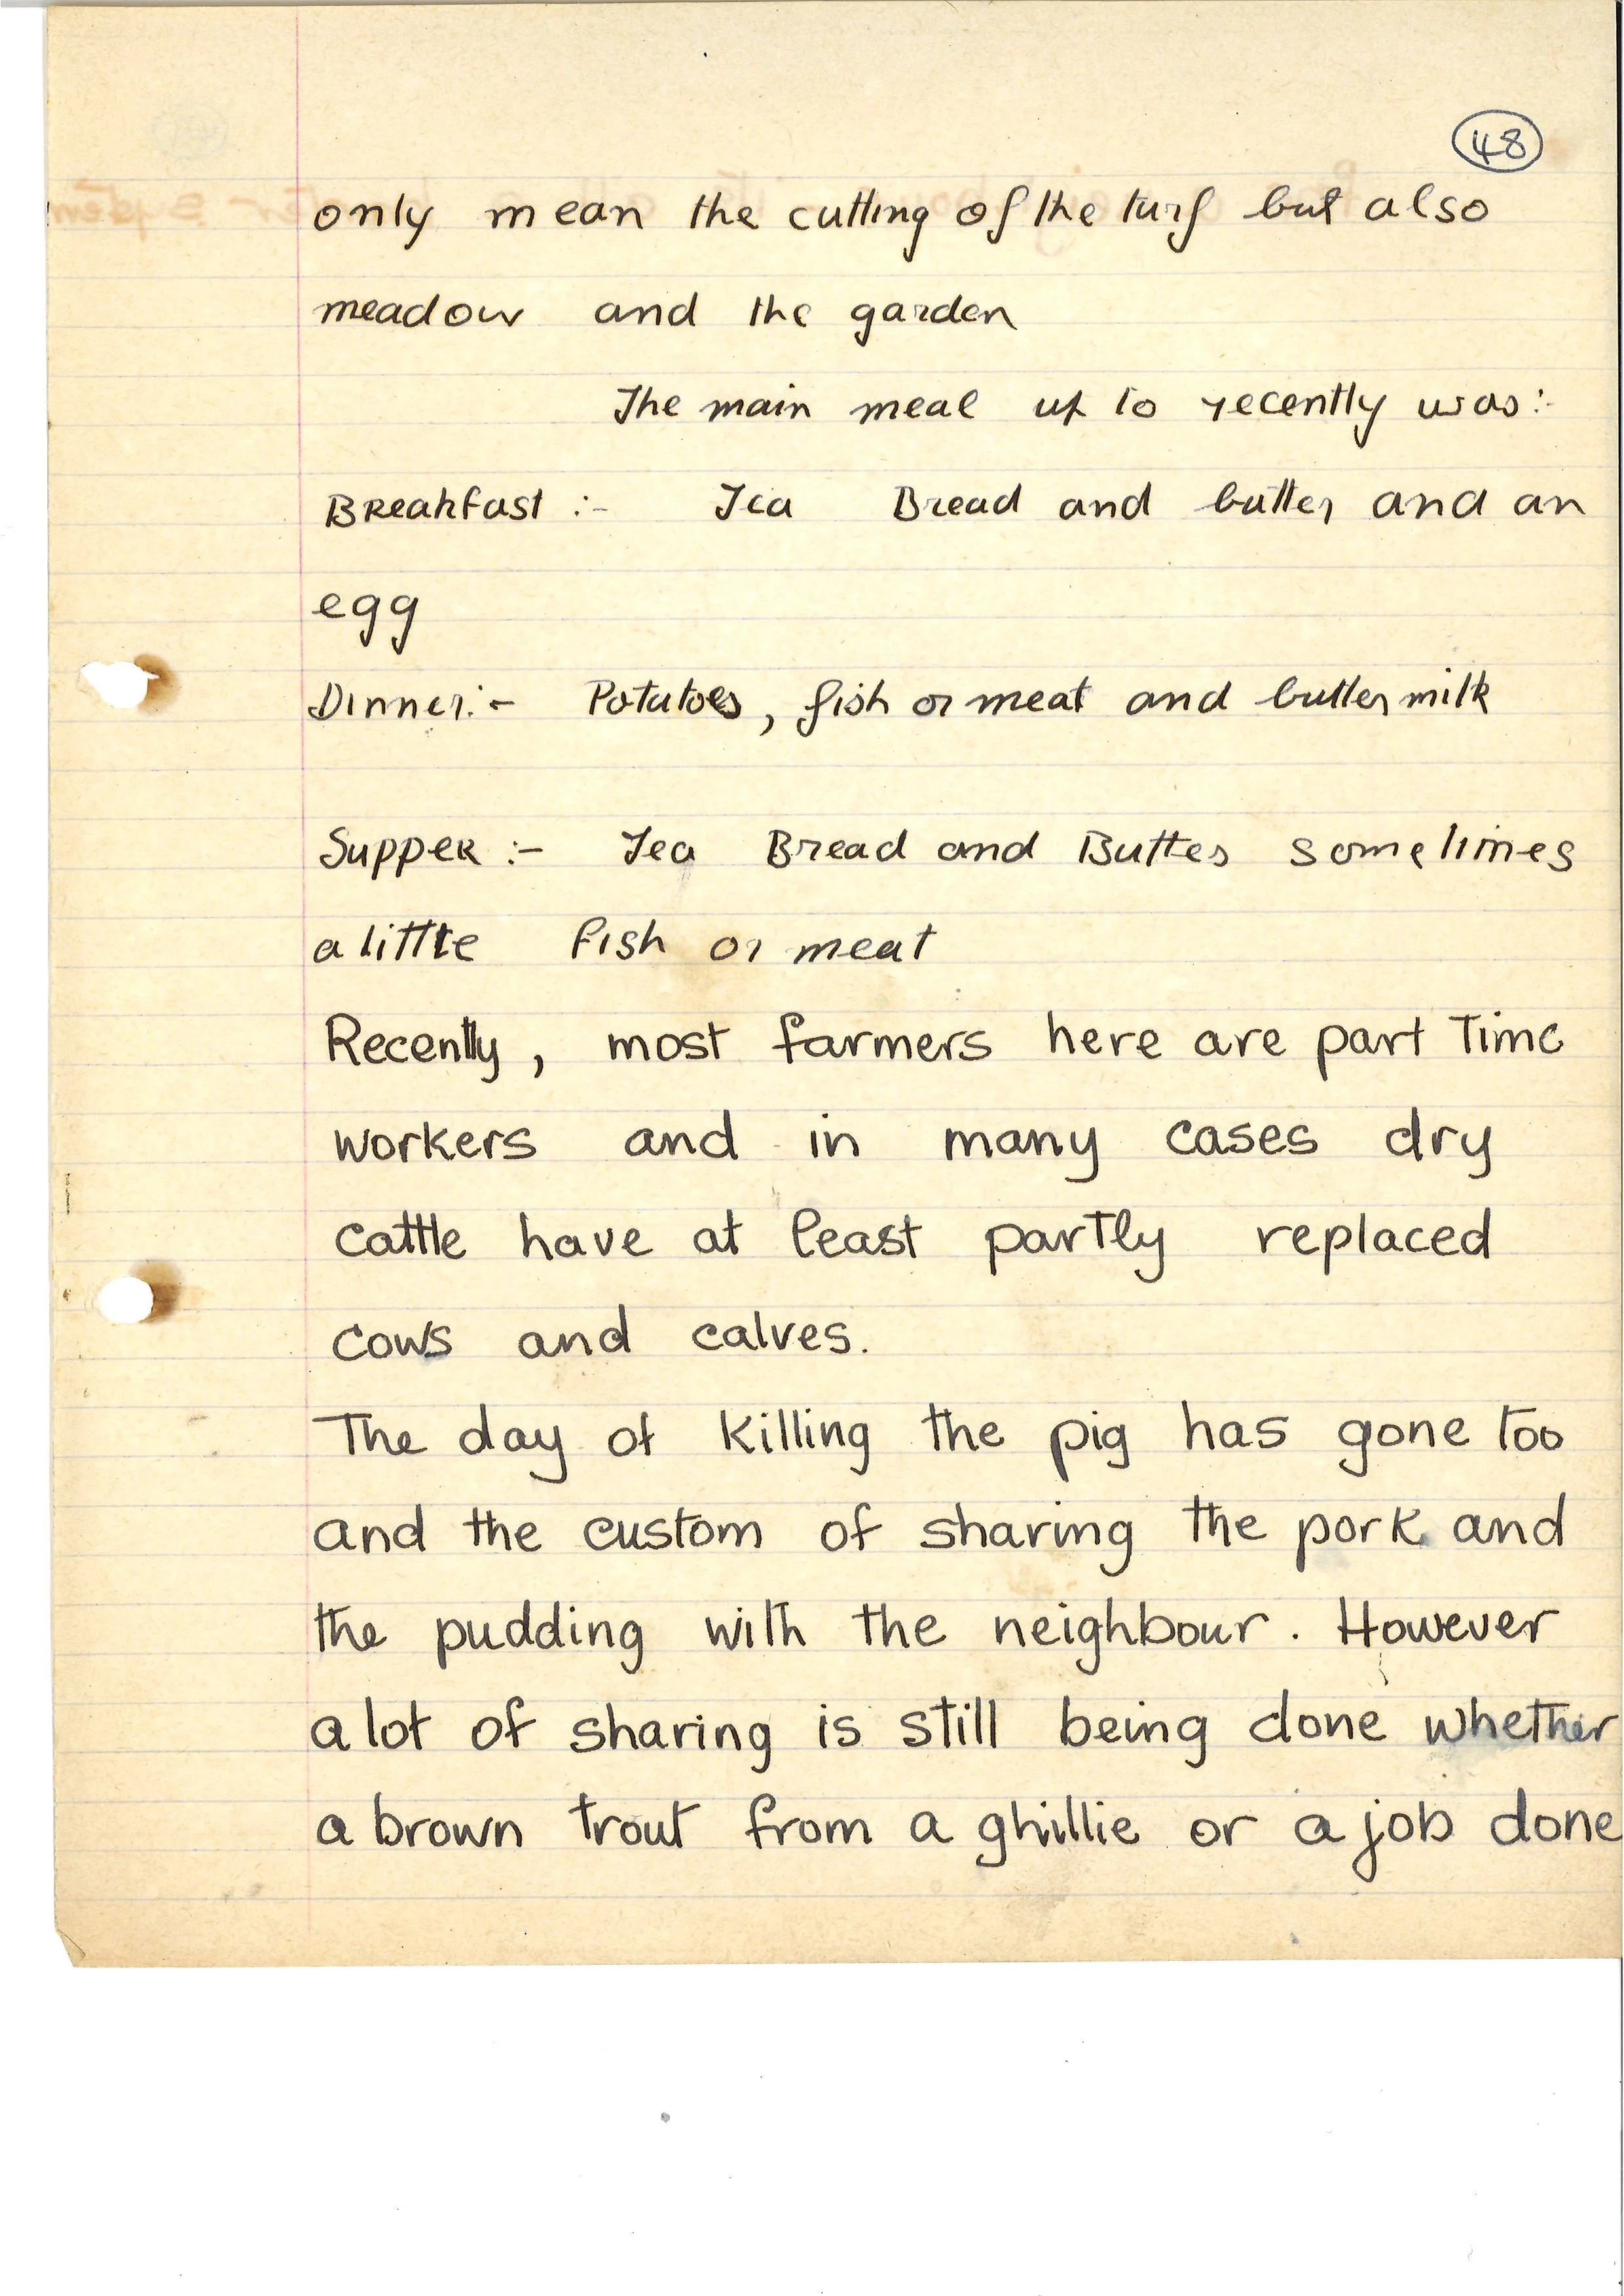 48
only mean the cutting of the turf but also
meadow and the garden
The main meal up to recently was:-
Breakfast :- Tea Bread and butter and an
egg
Dinner:- Potatoes, fish or meat and buttermilk
Supper :- Tea Bread and Butter sometimes
a little fish or meat
Recently, most farmers here are part time
workers and in many cases dry
cattle have at least partly replaced
cows and calves.
The day of killing the pig has gone too
and the custom of sharing the pork and
the pudding with the neighbour. However
a lot of sharing is still being done whether
a brown trout from a ghillie or a job done